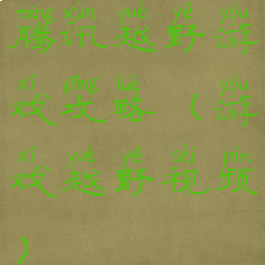 téng xùn yuè yě yóu
腾讯越野游
xì gōng lüè yóu
戏攻略(游
xì yuè yě shì pín
戏越野视频
)